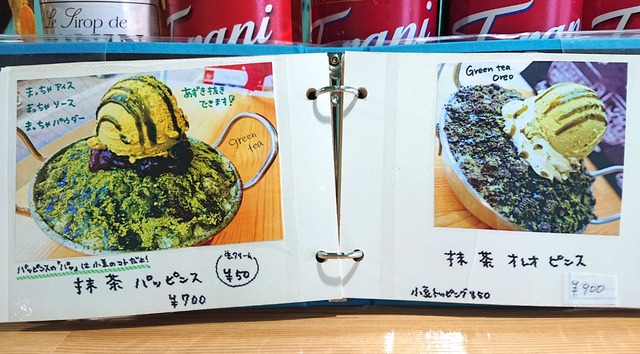 Le Sirop de
MONIN
Torani
Torani
Torani
まっちゃアイス
まっちゃソース
まっちゃパウダー
あずき抜き
できます?
green
tea
パッピンスの"パッ"は小豆のコトだよ!
抹茶 パッピンス
¥700
生クリーム
¥50
Green tea
Oreo
抹茶 オレオ ピンス
小豆トッピング ¥50
¥900